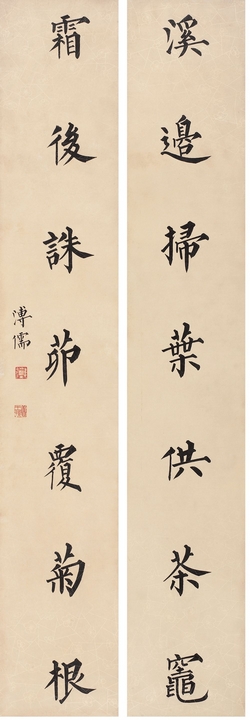 溪邊掃葉供茶竈
霜後誅茆覆菊根
溥儒